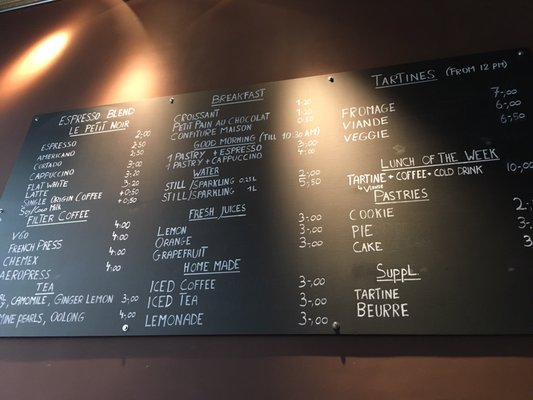 ESPRESSO BLEND
LE PETIT NOIR
ESPRESSO 2.00
AMERICANO 2.50
CORTADO 2.50
CAPPUCCINO 3.00
FLAT WHITE 3.20
LATTE 3.20
SINGLE ORIGIN COFFEE +0.50
SOY/GOAT MILK +0.50
FILTER COFFEE
V60 4.00
FRENCH PRESS 4.00
CHEMEX 4.00
AEROPRESS 4.00
TEA
CAMOMILE, GINGER LEMON 3.00
PEARLS, OOLONG 4.00
BREAKFAST
CROISSANT 1.20
PETIT PAIN AU CHOCOLAT 1.20
CONFITURE MAISON
GOOD MORNING (TILL 10:30 AM)
1 PASTRY + ESPRESSO 3.00
1 PASTRY + CAPPUCCINO 4.00
WATER
STILL/SPARKLING 0.25L 2.00
STILL/SPARKLING 1L 5.50
FRESH JUICES
LEMON 3.00
ORANGE 3.00
GRAPEFRUIT 3.00
HOME MADE
ICED COFFEE 3.00
ICED TEA 3.00
LEMONADE 3.00
TARTINES (FROM 12 PM)
FROMAGE 7.00
VIANDE 6.00
VEGGIE 6.50
LUNCH OF THE WEEK
TARTINE + COFFEE + COLD DRINK 10.00
PASTRIES
COOKIE 2.
PIE 3.
CAKE 3
SUPPL.
TARTINE
BEURRE